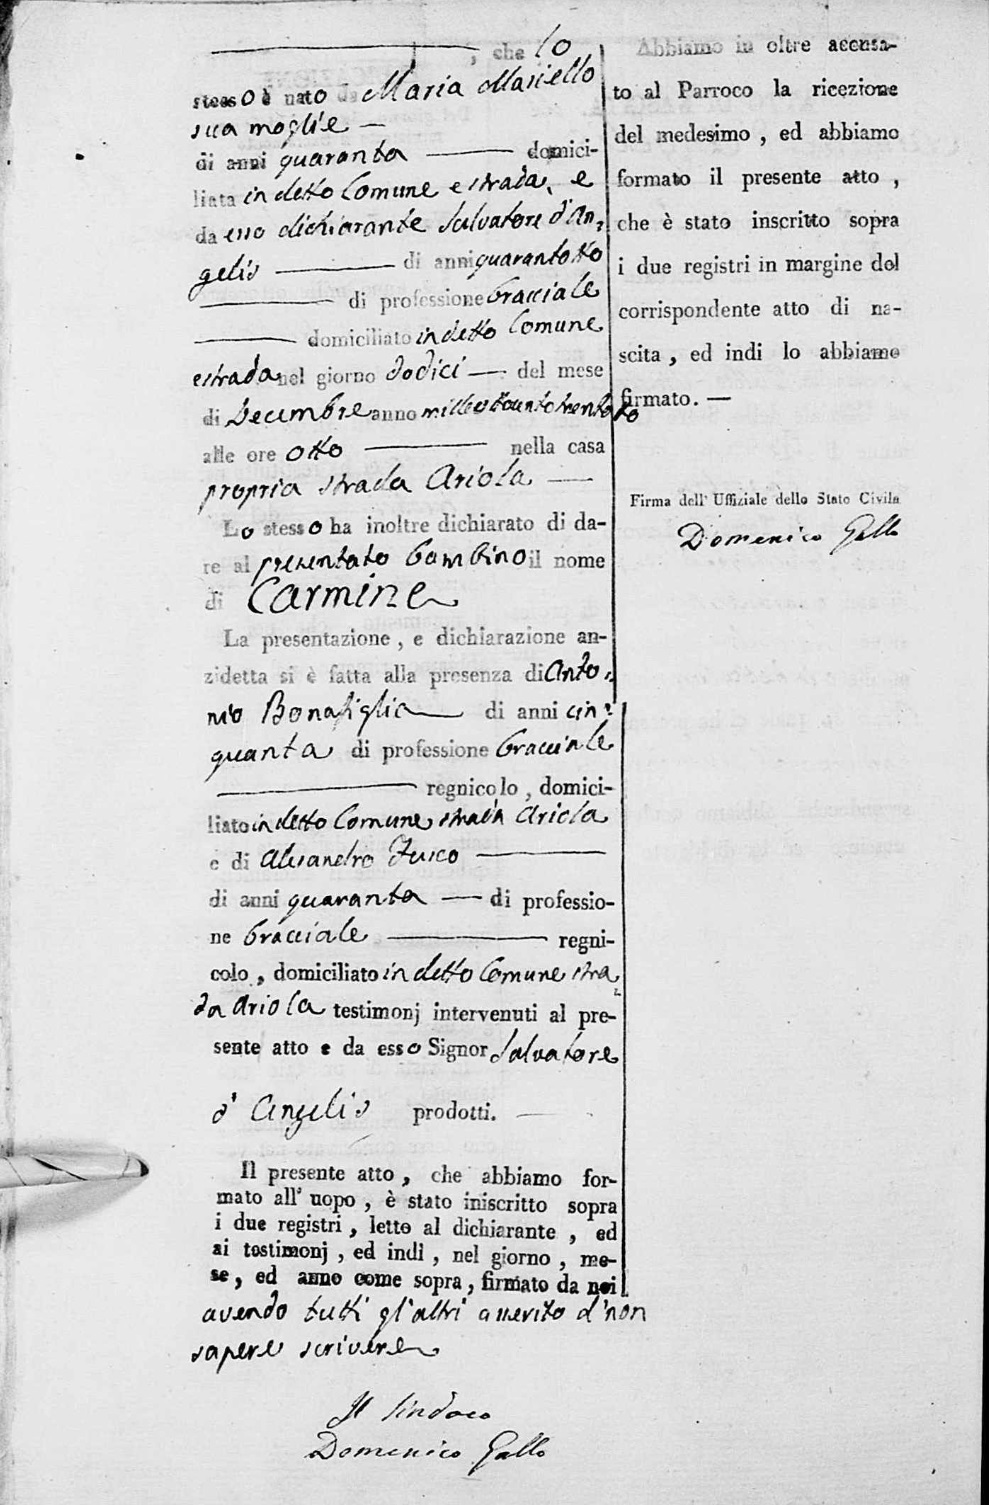 , che lo
stesso è nato da Maria Masiello
sua moglie —
di anni quaranta — domici-
liata in detto Comune e strada, e
da esso dichiarante Salvatore d'An-
gelis — di anni quarantotto
— di professione bracciale
— domiciliato in detto Comune
e strada nel giorno dodici — del mese
di Decembre anno milleottocentotrentotto
alle ore otto — nella casa
propria strada Ariola —
Lo stesso ha inoltre dichiarato di da-
re al presentato bambino il nome
di Carmine
La presentazione, e dichiarazione an-
zidetta si è fatta alla presenza di Anto-
nio Bonafiglia — di anni cin-
quanta di professione bracciale
— regnicolo, domici-
liato in detto Comune strada Ariola
e di Alesandro Fusco —
di anni quaranta — di professio-
ne bracciale — regni-
colo, domiciliato in detto Comune stra
da Ariola testimonj intervenuti al pre-
sente atto e da esso Signor Salvatore
d'Angelis prodotti. —
Il presente atto, che abbiamo for-
mato all' uopo, è stato iniscritto sopra
i due registri, letto al dichiarante, ed
ai testimonj, ed indi, nel giorno, me-
se, ed anno come sopra, firmato da noi
avendo tutti gl'altri asserito d'non
sapere scrivere
Il Sindaco
Domenico Gallo
Abbiamo in oltre accusa-
to al Parroco la ricezione
del medesimo, ed abbiamo
formato il presente atto,
che è stato inscritto sopra
i due registri in margine del
corrispondente atto di na-
scita, ed indi lo abbiamo
firmato. —
Firma dell' Uffiziale dello Stato Civile
Domenico Gallo